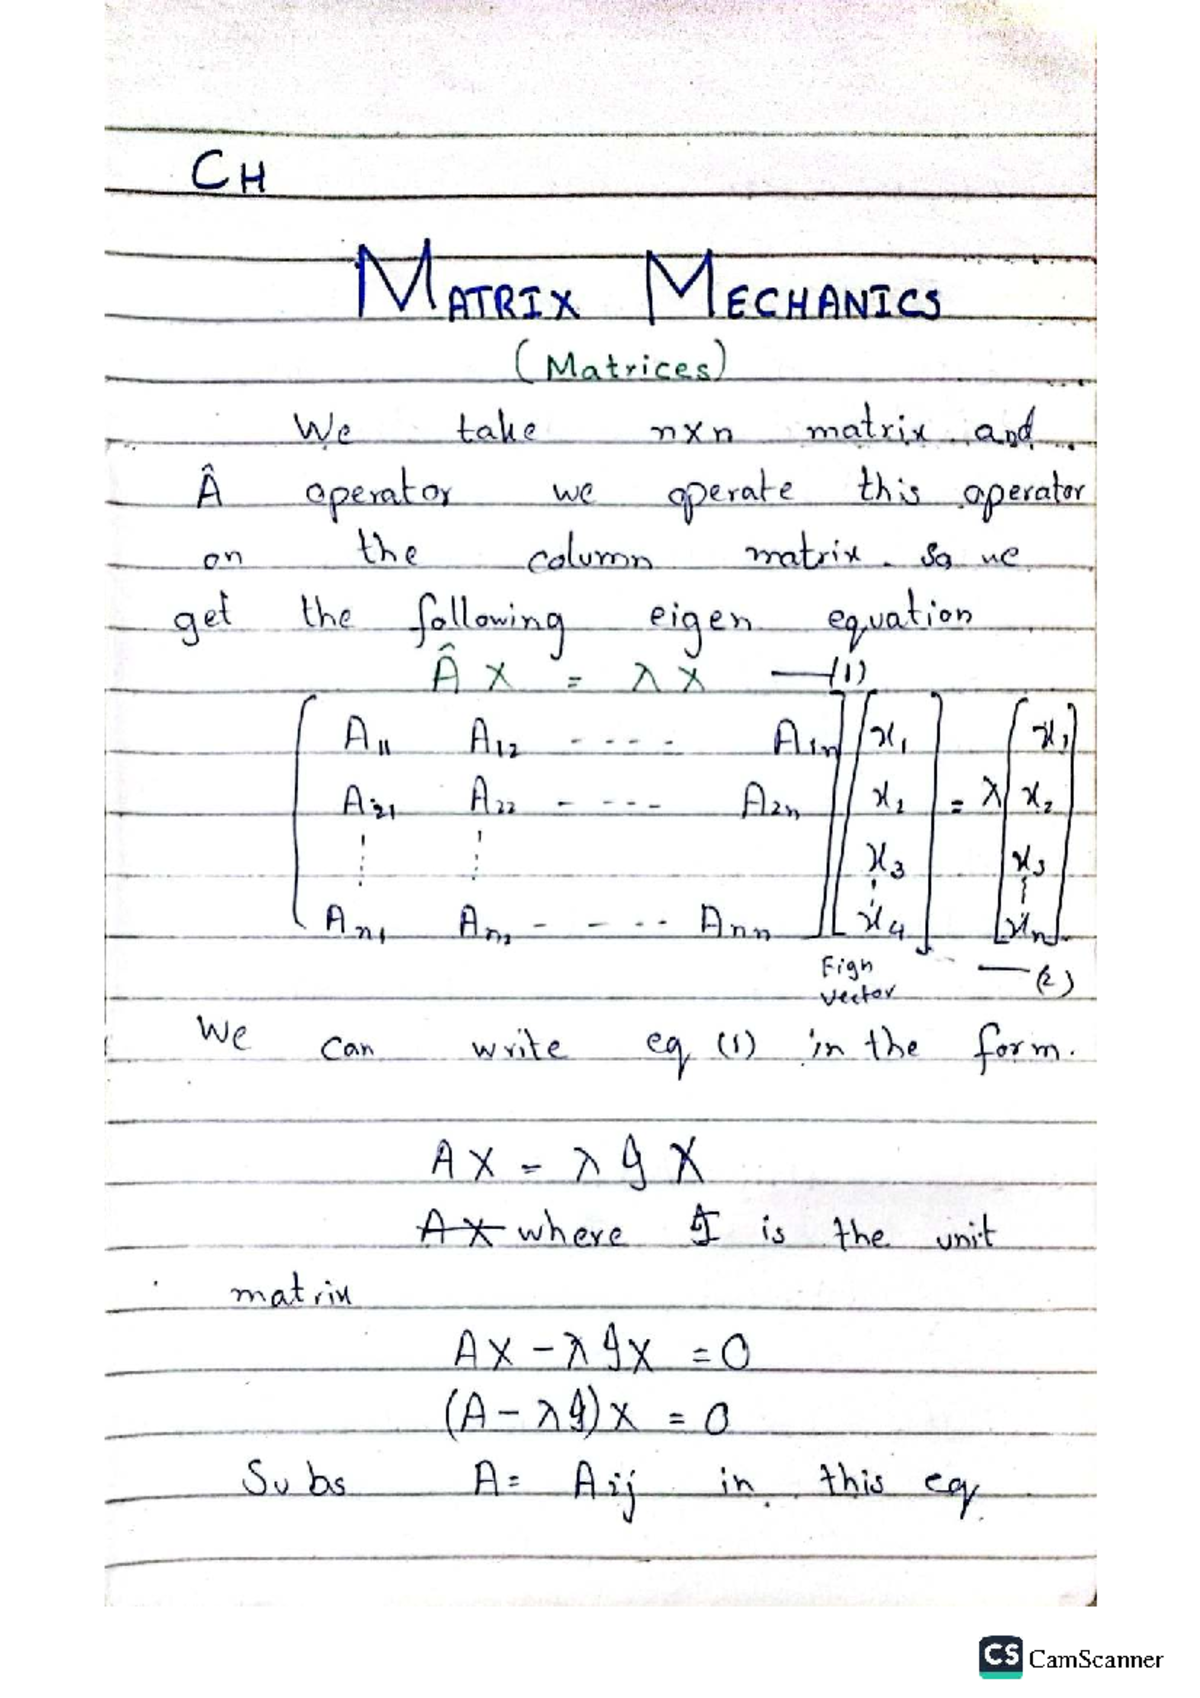 CH
MATRIX MECHANICS
(Matrices)
We take n×n matrix and
Â operator we operate this operator
on the column matrix. So we
get the following eigen equation
Â X = λ X —(1)
A₁₁ A₁₂ - - - - A₁ₙ x₁ x₁
A₂₁ A₂₂ - - - - A₂ₙ x₂ = λ x₂
x₃ x₃
Aₙ₁ Aₙ₂ - - - - Aₙₙ x₄ xₙ
Eign —(2)
vector
We can write eq (1) in the form.
AX = λ I X
AX where I is the unit
matrix
AX - λIX = 0
(A - λI)X = 0
Subs A = Aij in this eq
CS CamScanner